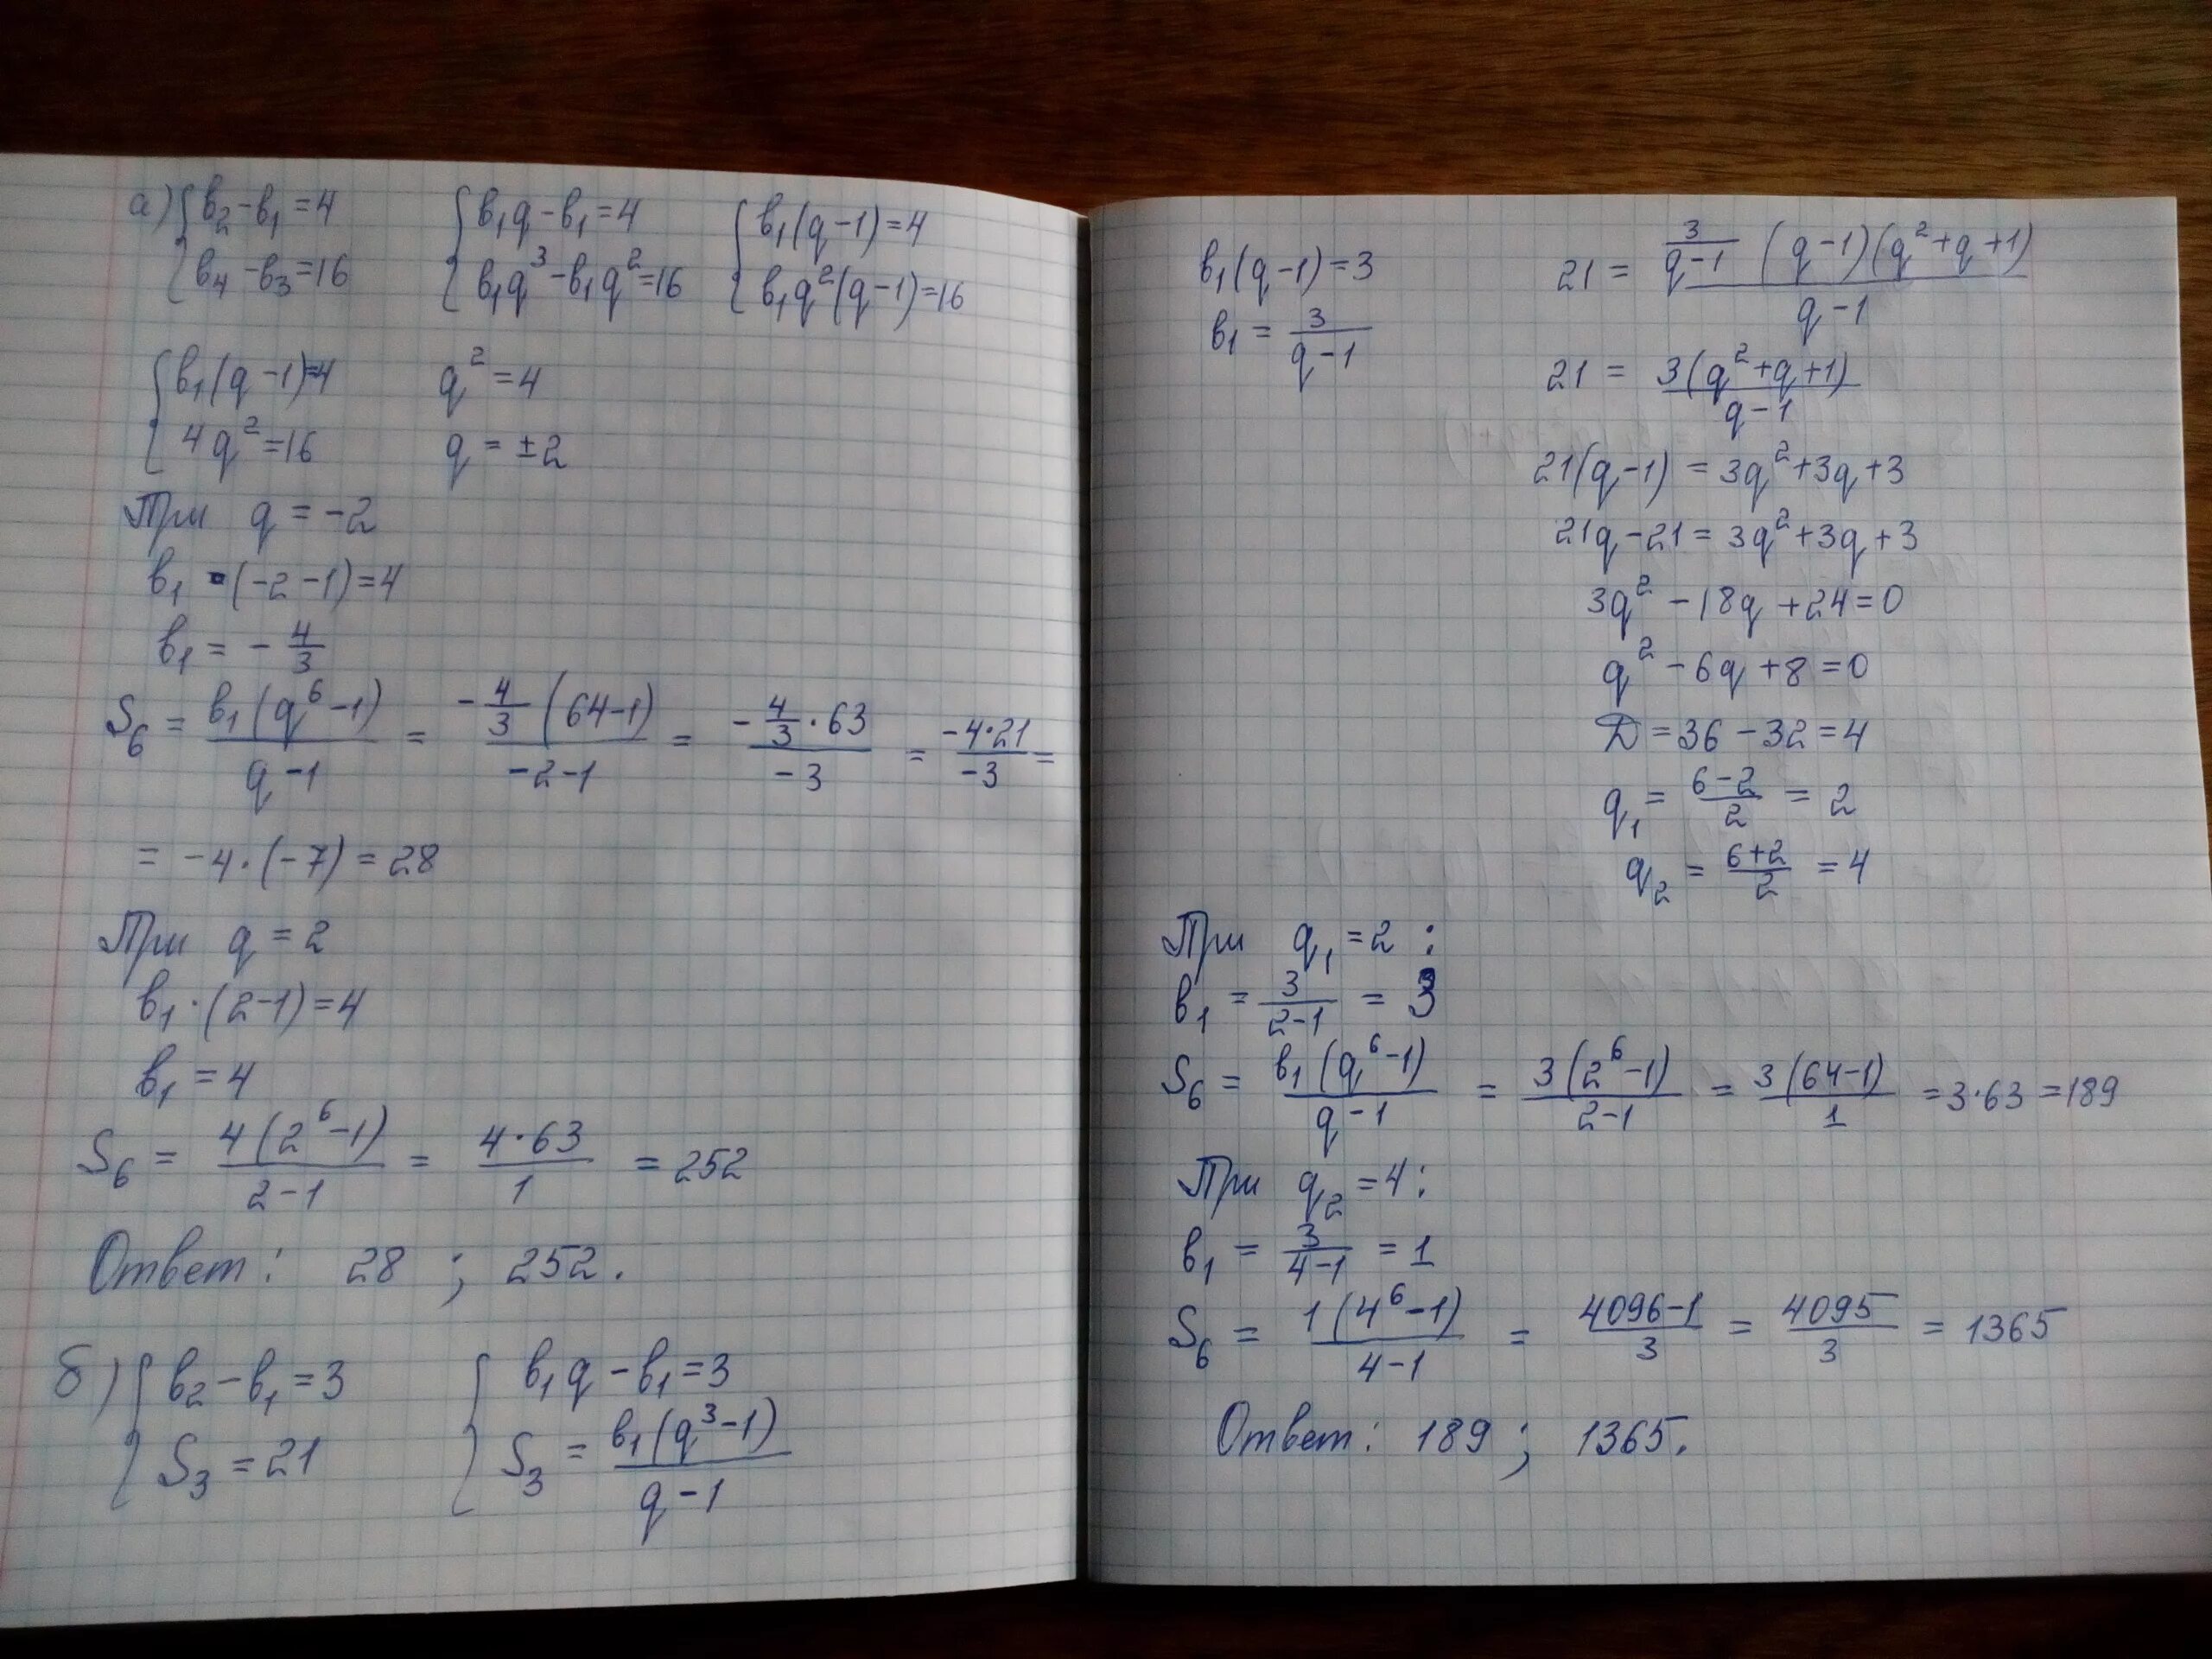 а) { b₂ - b₁ = 4   { b₁q - b₁ = 4   { b₁(q-1) = 4
{ b₄ - b₃ = 16   { b₁q³ - b₁q² = 16   { b₁q²(q-1) = 16
{ b₁(q-1) = 4   q² = 4
{ 4q² = 16   q = ±2
При q = -2
b₁ · (-2-1) = 4
b₁ = - 4/3
S₆ = b₁(q⁶-1)/(q-1) = -4/3 (64-1)/(-2-1) = -4/3 · 63/(-3) = -4·21/(-3) =
= -4·(-7) = 28
При q = 2
b₁ · (2-1) = 4
b₁ = 4
S₆ = 4(2⁶-1)/(2-1) = 4·63/1 = 252
Ответ: 28 ; 252.
б) { b₂ - b₁ = 3   { b₁q - b₁ = 3
{ S₃ = 21   { S₃ = b₁(q³-1)/(q-1)
b₁(q-1) = 3   21 = 3/(q-1) (q-1)(q²+q+1)/(q-1)
b₁ = 3/(q-1)   21 = 3(q²+q+1)/(q-1)
21(q-1) = 3q²+3q+3
21q-21 = 3q²+3q+3
3q² - 18q + 24 = 0
q² - 6q + 8 = 0
D = 36 - 32 = 4
q₁ = (6-2)/2 = 2
q₂ = (6+2)/2 = 4
При q₁ = 2 :
b₁ = 3/(2-1) = 3
S₆ = b₁(q⁶-1)/(q-1) = 3(2⁶-1)/(2-1) = 3(64-1)/1 = 3·63 = 189
При q₂ = 4:
b₁ = 3/(4-1) = 1
S₆ = 1(4⁶-1)/(4-1) = (4096-1)/3 = 4095/3 = 1365
Ответ: 189 ; 1365.